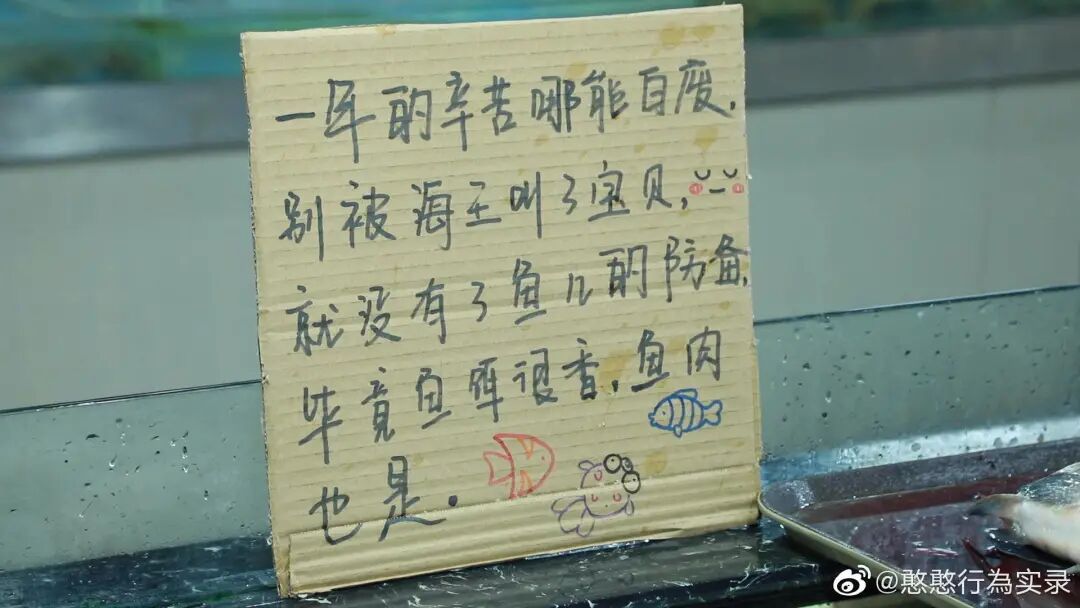 一年的辛苦哪能白废,
别被海王叫了宝贝,
就没有了鱼儿的防备,
毕竟鱼很香,鱼肉
也是.
@憨憨行為实录